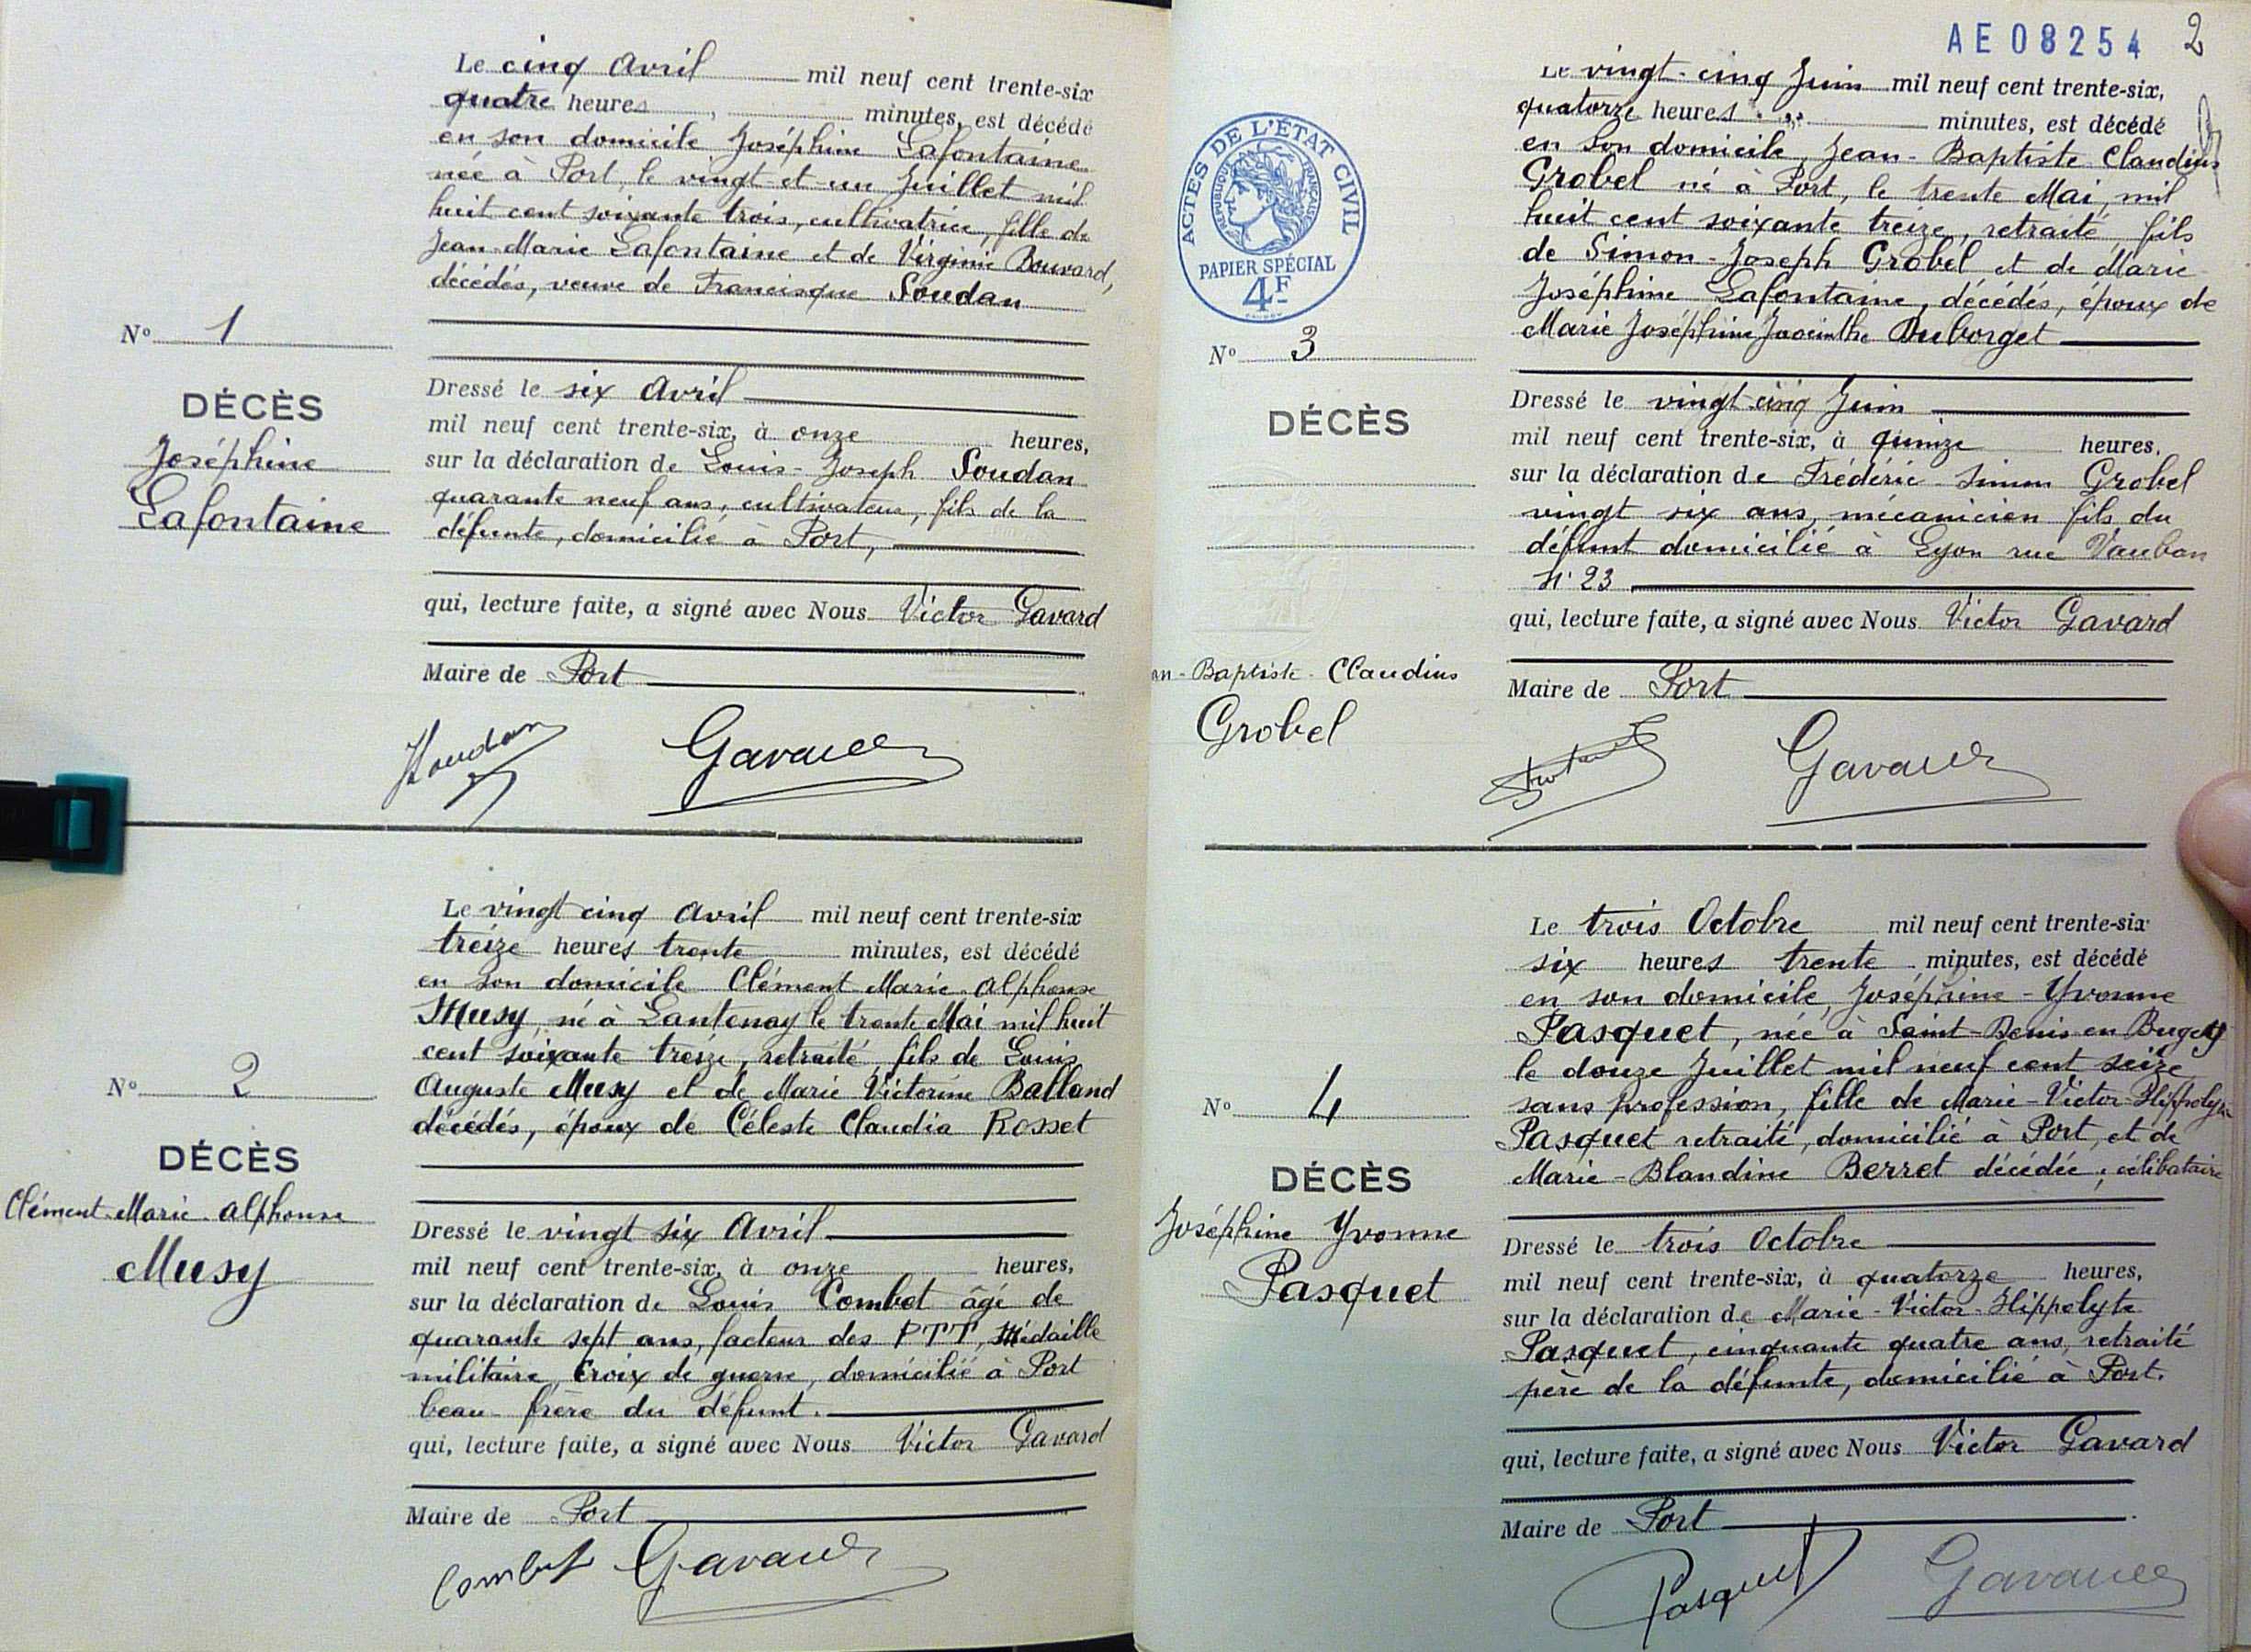 Le cinq Avril mil neuf cent trente-six
quatre heures, minutes, est décédé
en son domicile Joséphine Lafontaine
née à Port, le vingt et un Juillet mil
huit cent soixante trois, cultivatrice, fille de
Jean-Marie Lafontaine et de Virginie Bouvard,
décédés, veuve de Francisque Soudan
N° 1
DÉCÈS
Joséphine
Lafontaine
Dressé le six Avril
mil neuf cent trente-six, à onze heures,
sur la déclaration de Louis-Joseph Soudan
quarante neuf ans, cultivateur, fils de la
défunte, domicilié à Port,
qui, lecture faite, a signé avec Nous Victor Gavard
Maire de Port
Soudan Gavard
Le vingt cinq Avril mil neuf cent trente-six
treize heures trente minutes, est décédé
en son domicile Clément-Marie-Alphonse
Musy, né à Lantenay le trente Mai mil huit
cent soixante treize, retraité, fils de Louis
Auguste Musy et de Marie Victorine Balland
décédés, époux de Céleste Claudia Rosset
N° 2
DÉCÈS
Clément-Marie-Alphonse
Musy
Dressé le vingt six Avril
mil neuf cent trente-six, à onze heures,
sur la déclaration de Louis Combet âgé de
quarante sept ans, facteur des PTT, Médaille
militaire, Croix de guerre, domicilié à Port
beau-frère du défunt.
qui, lecture faite, a signé avec Nous Victor Gavard
Maire de Port
Combet Gavard
AE08254 2
Le vingt-cinq Juin mil neuf cent trente-six,
quatorze heures minutes, est décédé
en son domicile, Jean-Baptiste Claudius
Grobel né à Port, le trente Mai, mil
huit cent soixante treize, retraité, fils
de Simon-Joseph Grobel et de Marie
Joséphine Lafontaine, décédés, époux de
Marie Joséphine Jacinthe Duborget
ACTES DE L'ÉTAT CIVIL
RÉPUBLIQUE FRANÇAISE
PAPIER SPÉCIAL
4F
N° 3
DÉCÈS
an-Baptiste-Claudius
Grobel
Dressé le vingt-cinq Juin
mil neuf cent trente-six, à quinze heures,
sur la déclaration de Frédéric-Simon Grobel
vingt six ans, mécanicien fils du
défunt domicilié à Lyon rue Vauban
N° 23
qui, lecture faite, a signé avec Nous Victor Gavard
Maire de Port
Gavard
Le trois Octobre mil neuf cent trente-six
six heures trente minutes, est décédé
en son domicile, Joséphine-Yvonne
Pasquet, née à Saint-Denis en Bugey
le douze Juillet mil neuf cent seize
sans profession, fille de Marie-Victor-Hippolyte
Pasquet retraité, domicilié à Port, et de
Marie-Blandine Berret décédée ; célibataire
N° 4
DÉCÈS
Joséphine Yvonne
Pasquet
Dressé le trois Octobre
mil neuf cent trente-six, à quatorze heures,
sur la déclaration de Marie-Victor-Hippolyte
Pasquet, cinquante quatre ans, retraité
père de la défunte, domicilié à Port.
qui, lecture faite, a signé avec Nous Victor Gavard
Maire de Port
Pasquet Gavard